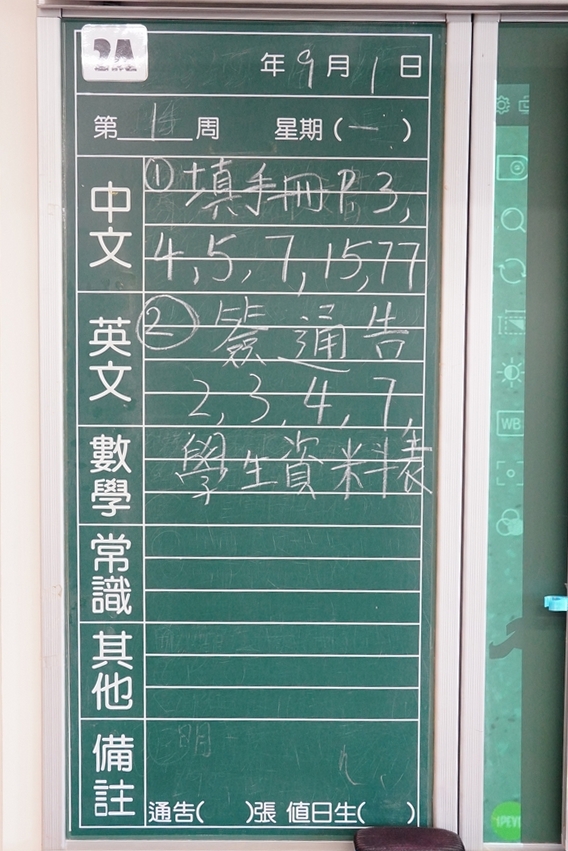 2A
年9月1日
第1周 星期(一)
中文
①填手冊P3,
4,5,7,15,77
英文
②簽通告
2,3,4,7,
數學
學生資料表
常識
其他
備註
通告( )張 值日生( )
WB
IPEVO